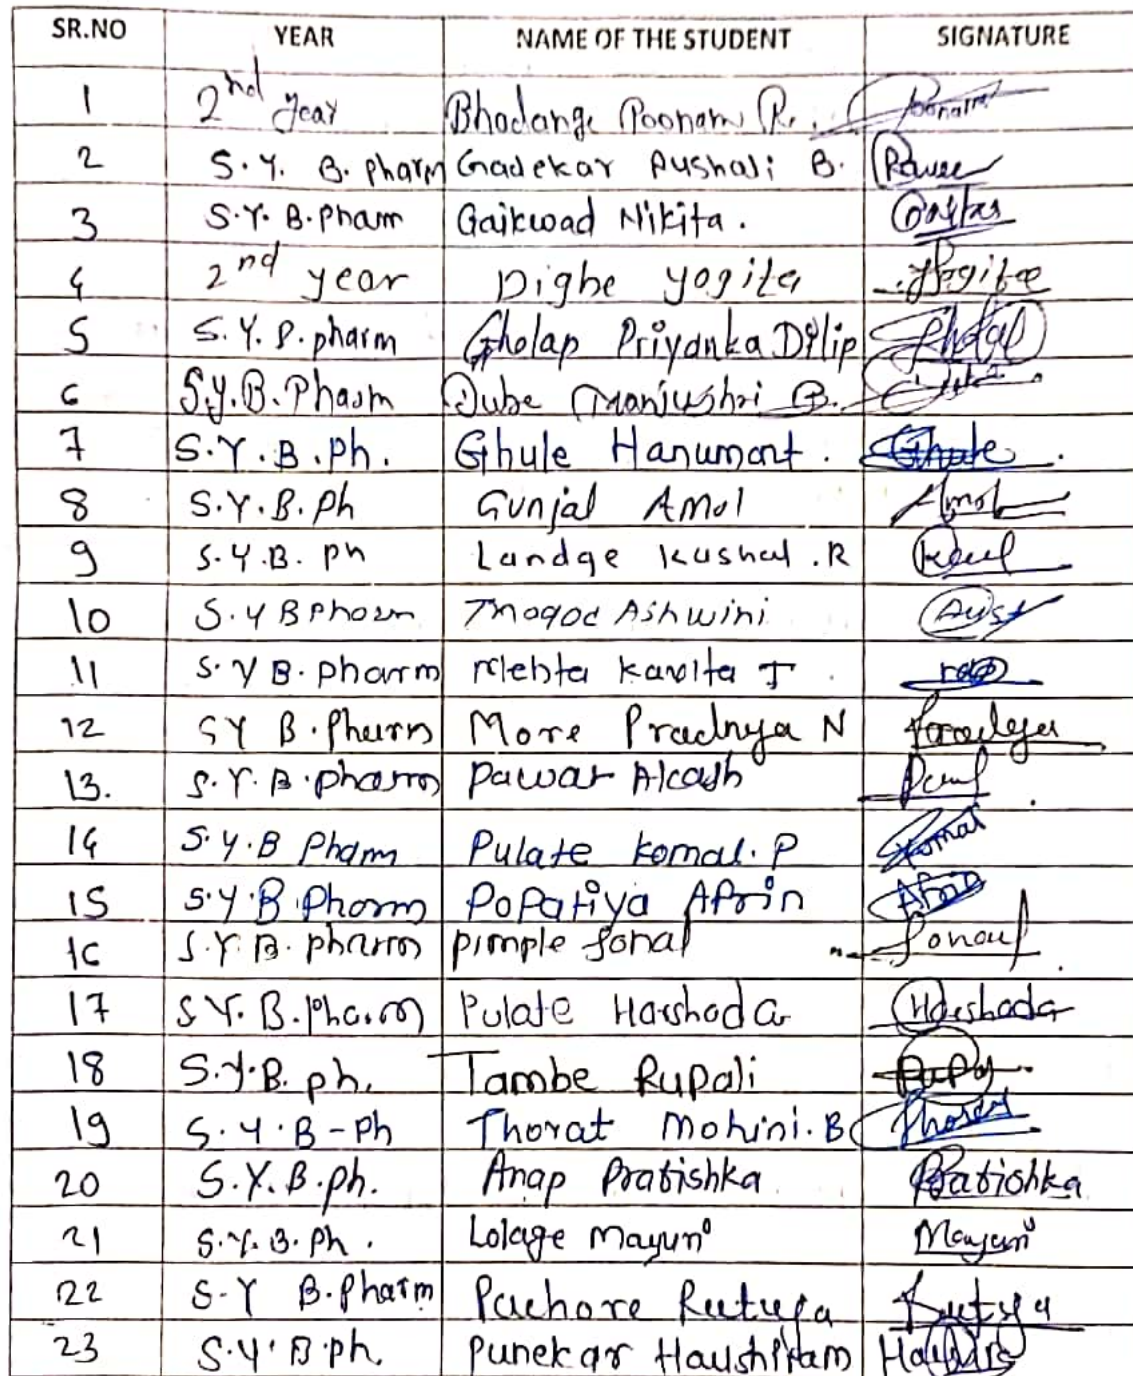 SR.NO YEAR NAME OF THE STUDENT SIGNATURE
1 2nd year Bhadange Poonam R. Poonam
2 S.Y. B. pharm Gadekar Rushali B.
3 S.Y. B. pham Gaikwad Nikita.
4 2nd year Dighe yogita Yogita
5 S.Y.B.pharm Gholap Priyanka Dilip Gholap
6 S.Y.B.Pharm Dube Manjushri B.
7 S.Y.B.ph. Ghule Hanumant. Ghule
8 S.Y.B.ph Gunjal Amol Amol
9 S.Y.B. ph Landge Kushal .R
10 S.Y B pharm Ashwini
11 S.Y B. pharm Mehta Kavita J
12 SY B. Pharm More Pradnya N Pradnya
13. S.Y.B.pharm Pawar Akash
14 S.Y.B Pharm Pulate Komal. P Komal
15 S.Y.B.Pharm Popatiya Afrin Afrin
16 S.Y.B. pharm pimple Sonal Sonal
17 S.Y. B.pharm Pulate Harshada Harshada
18 S.Y.B. ph. Tambe Rupali
19 S.Y.B-Ph Thorat Mohini.B Thorat
20 S.Y.B.ph. Anap Pratishka Pratishka
21 S.Y.B.ph. Lolage Mayuri Mayuri
22 S-Y B.Pharm Pachore Rutuja
23 S.Y.B.ph. Punekar